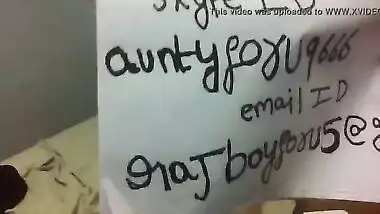 This video was uploaded to WWW.XVIDE
skype ID
auntyforu9666
email ID
rajboyforu5@g